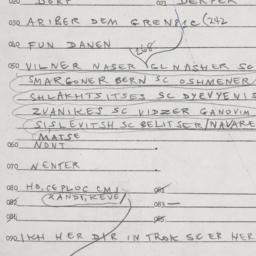 020 DORF 022 DERFER
030 ARIBER DEM GRENEC (242
040 FUN DANEN
268
050 VILNER NASER GLNASHER SC
SMARGONER BERN SC OSHMENER
SHLAKHTSITSES SC DYEVYENIS
ZVANIKES SC VIDZER GANOVIM
SISLEVITSH SC BELITSER/NAVARE
MATSE
060 NONT
070 NENTER
080 HO, CEPLOC CMJ 081
XANDI, KEVE/
082 083
084 085
090 IKH HER DIR IN TROK SC ER HER